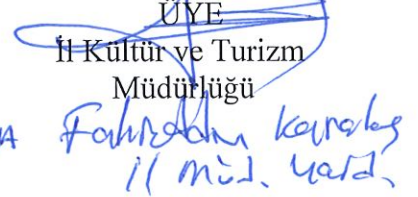 ÜYE
İl Kültür ve Turizm
Müdürlüğü
Fahrettin Karakaş
il müd. yard.